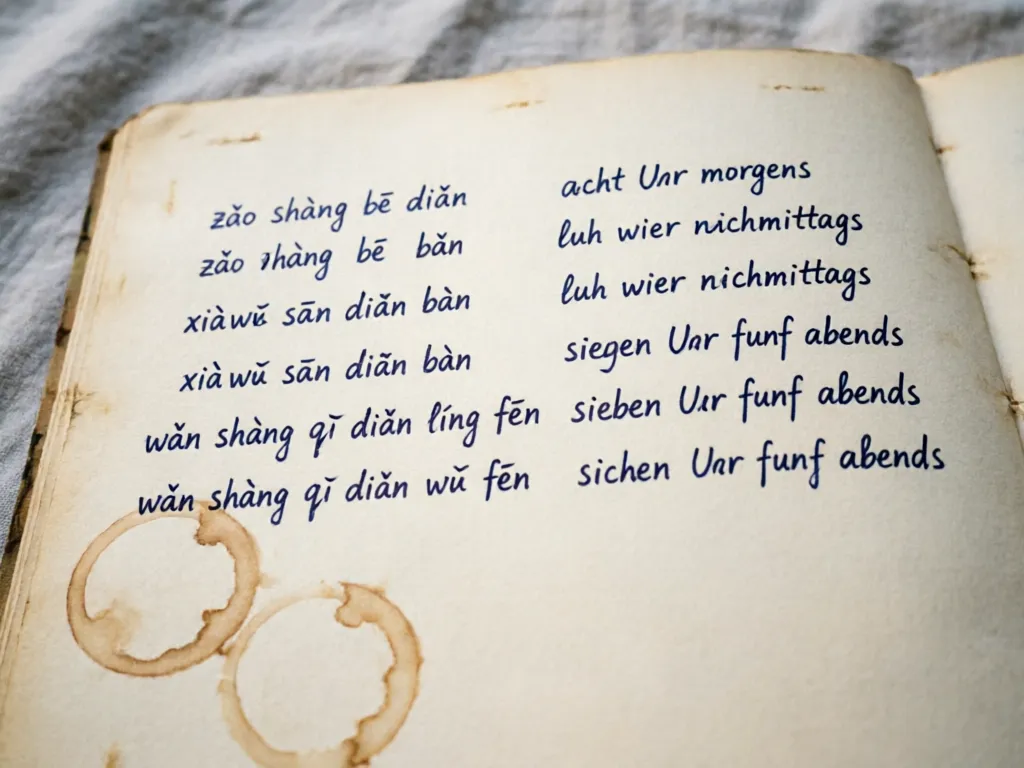 zǎo shàng bē diǎn acht Unr morgens
zǎo shàng bē bǎn luh wier nichmittags
xiàwǔ sān diǎn bàn luh wier nichmittags
xià wǔ sān diǎn bàn siegen Unr funf abends
wǎn shàng qǐ diǎn líng fēn sieben Uxr funf abends
wǎn shàng qǐ diǎn wǔ fēn sichen Unr funf abends